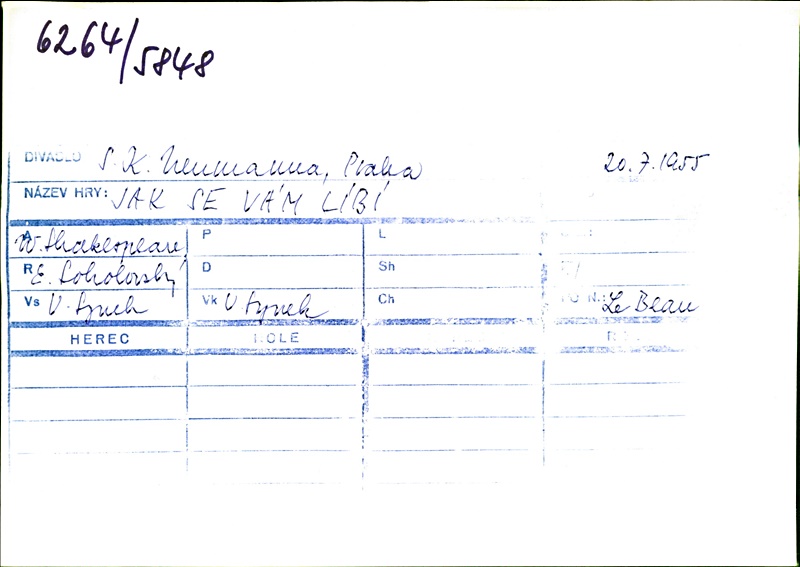 6264/5848
DIVADLO S. K. Neumanna, Praha 20.7.1955
NÁZEV HRY: JAK SE VÁM LÍBÍ
A W. Shakespeare P L
R E. Sokolovský D Sh
Vs V. Synek Vk V Synek Ch Le Beau
HEREC ROLE